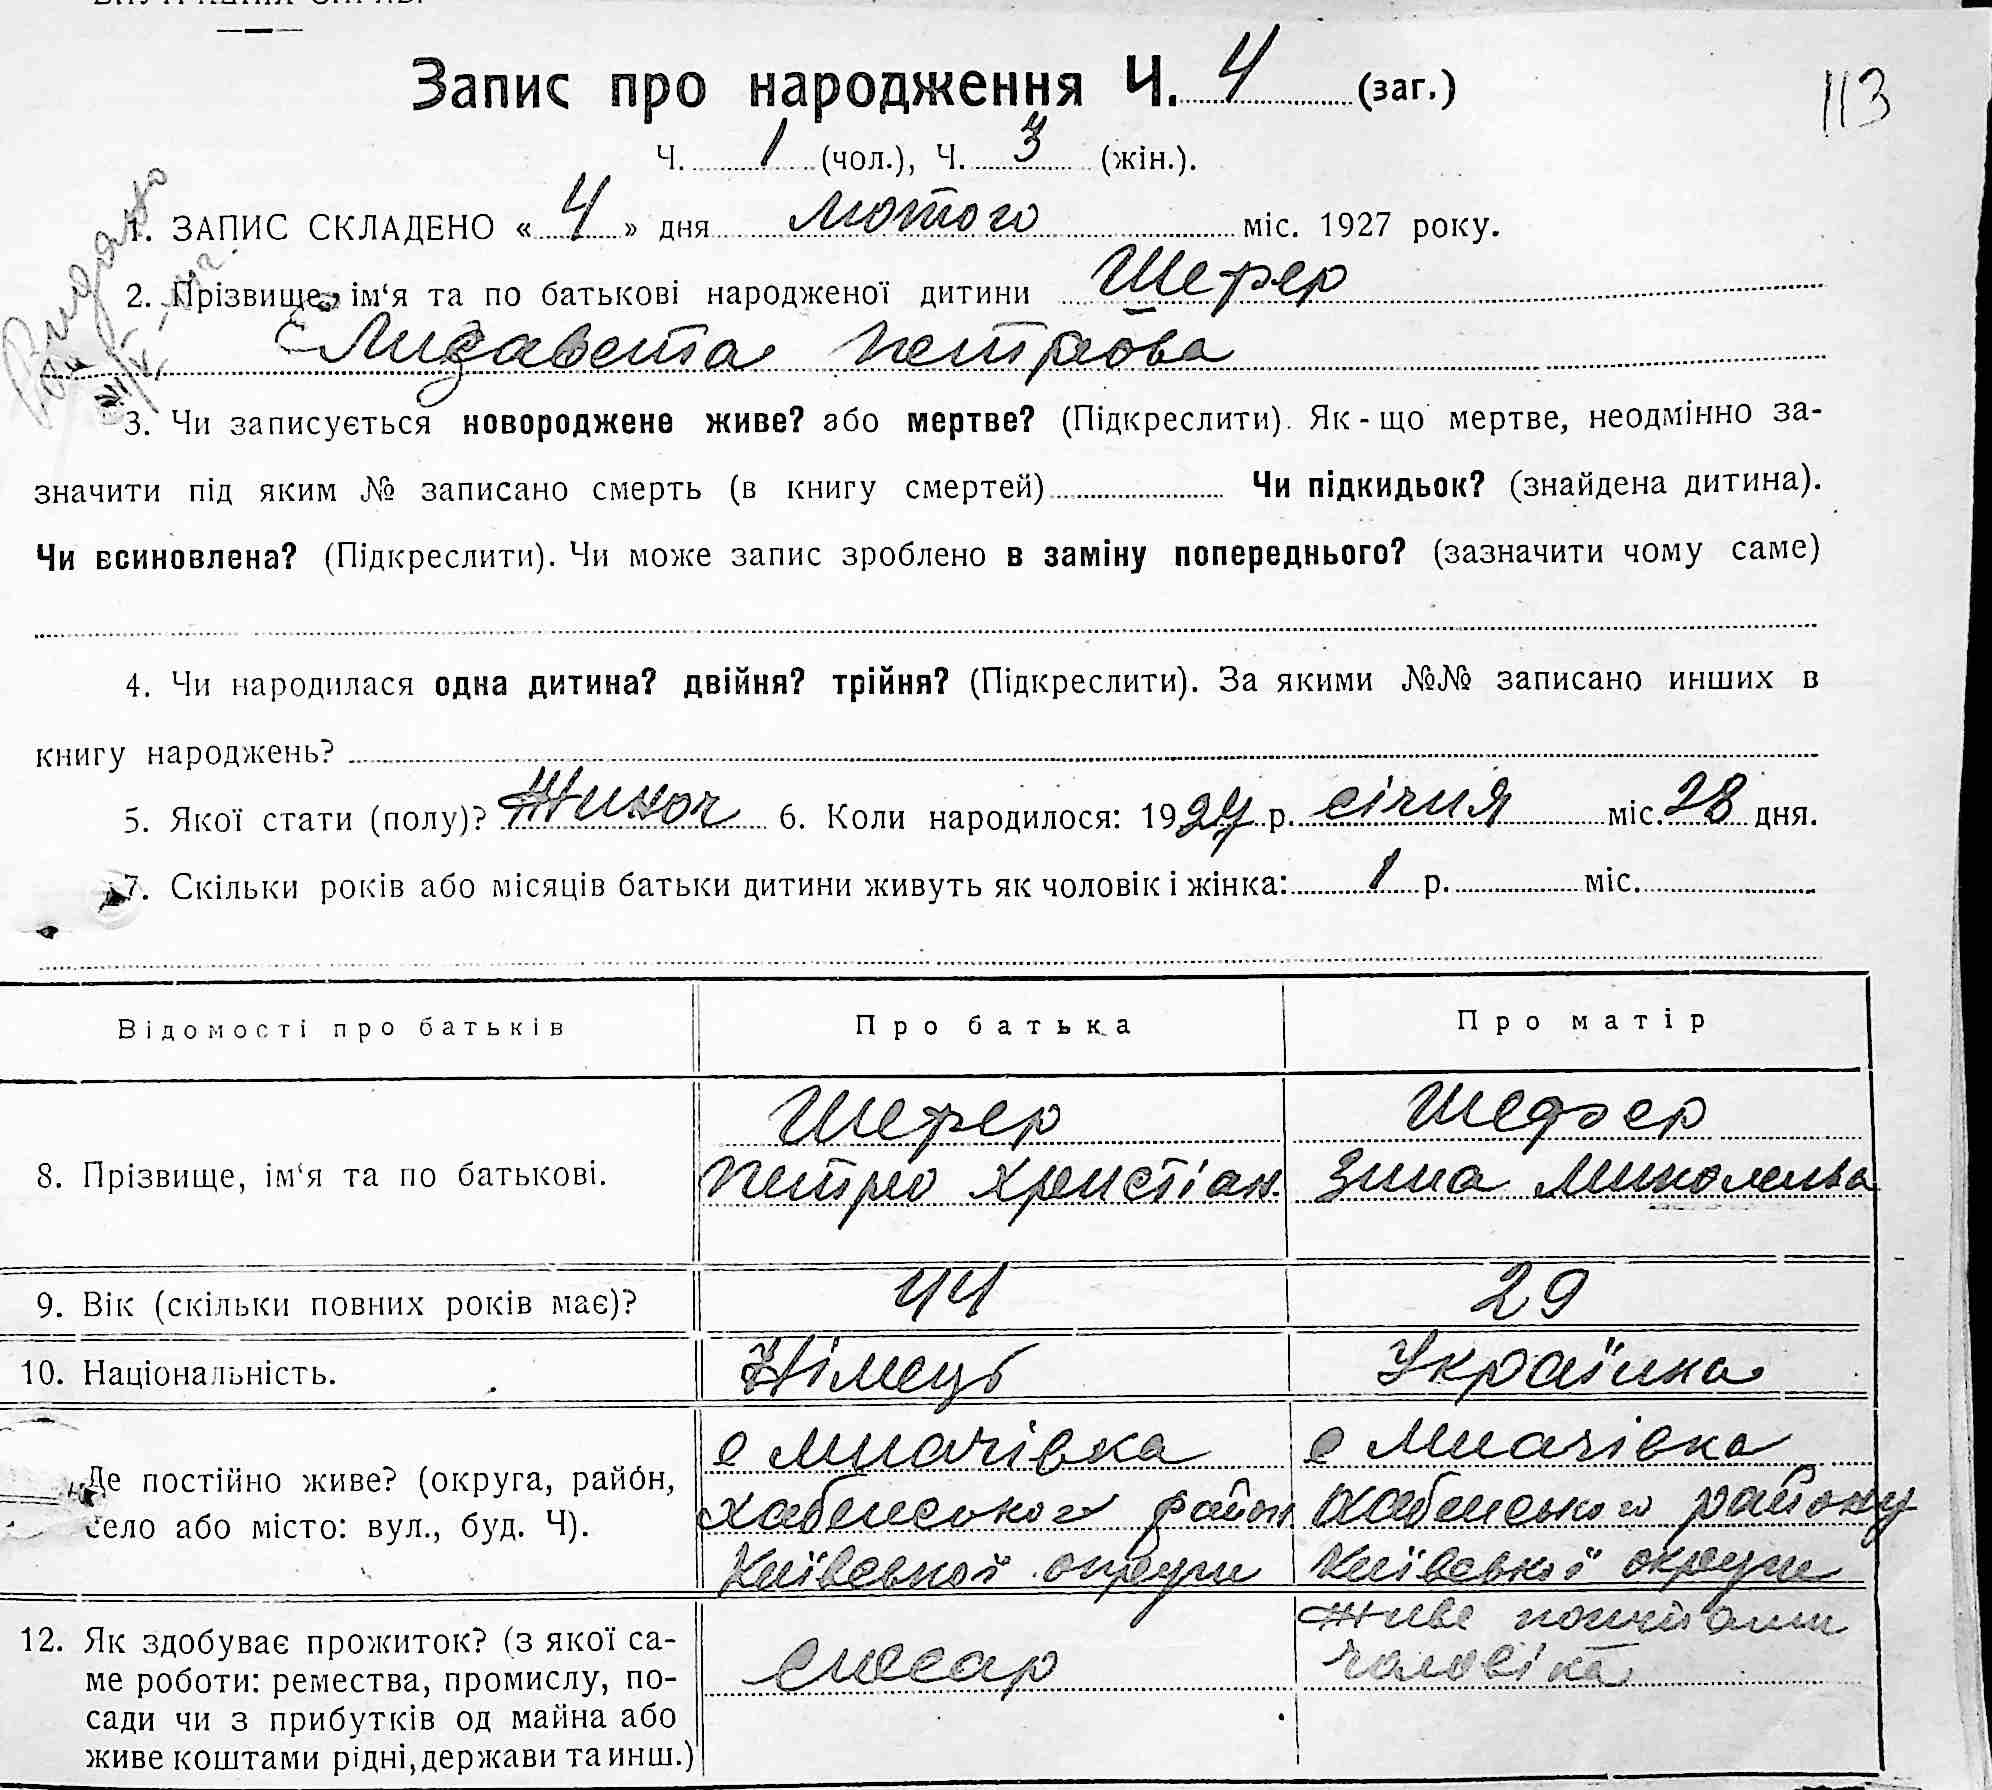 Запис про народження Ч. 4 (заг.)
113
Ч. 1 (чол.), Ч. 3 (жін.).
1. ЗАПИС СКЛАДЕНО « 4 » дня лютого міс. 1927 року.
2. Прізвище, ім‘я та по батькові народженої дитини Шефер
Елизавета Петрова
3. Чи записується новороджене живе? або мертве? (Підкреслити). Як-що мертве, неодмінно за-
значити під яким № записано смерть (в книгу смертей) Чи підкидьок? (знайдена дитина).
Чи всиновлена? (Підкреслити). Чи може запис зроблено в заміну попереднього? (зазначити чому саме)
4. Чи народилася одна дитина? двійня? трійня? (Підкреслити). За якими №№ записано инших в
книгу народжень?
5. Якої стати (полу)? Жиноч 6. Коли народилося: 1927 р. січня міс. 28 дня.
7. Скільки років або місяців батьки дитини живуть як чоловік і жінка: 1 р. міс.
Відомості про батьків Про батька Про матір
Шефер Шефер
8. Прізвище, ім‘я та по батькові. Петро Християн Зина Миколаева
9. Вік (скільки повних років має)? 44 29
10. Національність. Німець Українка
с Мпачівка с Мпачівка
Де постійно живе? (округа, район, Хабенського район Хабенського району
село або місто: вул., буд. Ч). Київської округи Київської округи
12. Як здобуває прожиток? (з якої са- слюсар живе коштами
ме роботи: ремества, промислу, по- чоловіка
сади чи з прибутків од майна або
живе коштами рідні, держави та инш.)